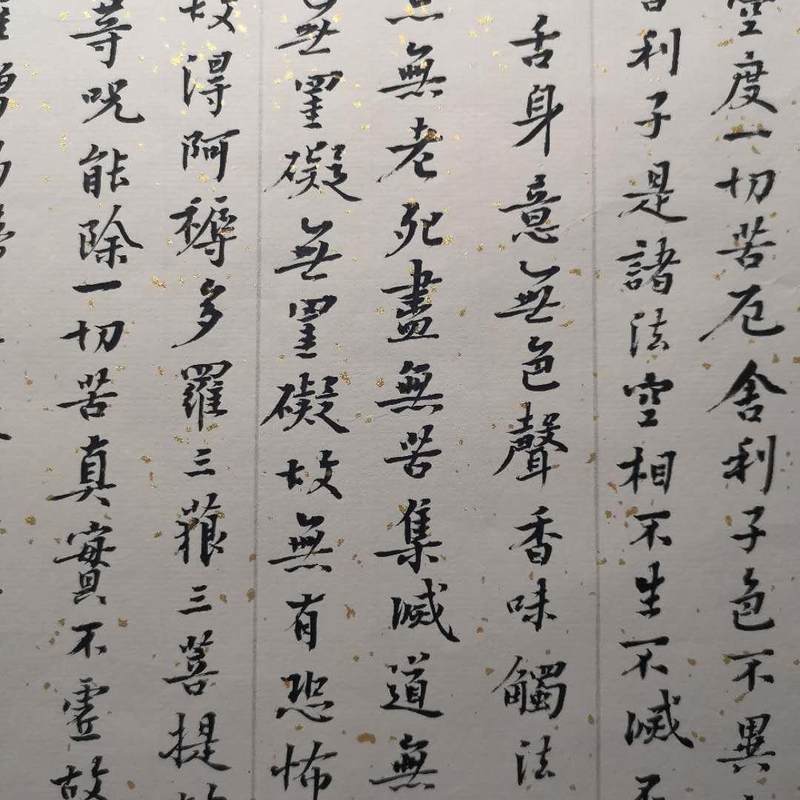 空度一切苦厄舍利子色不異
利子是諸法空相不生不滅不
舌身意無色聲香味觸法
無老死盡無苦集滅道無
無罣礙無罣礙故無有恐怖
故得阿耨多羅三藐三菩提
等咒能除一切苦真實不虛故